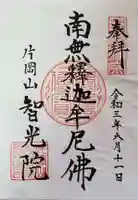 奉拝
令和三年八月十一日
南無釋迦牟尼佛
片岡山
智光院